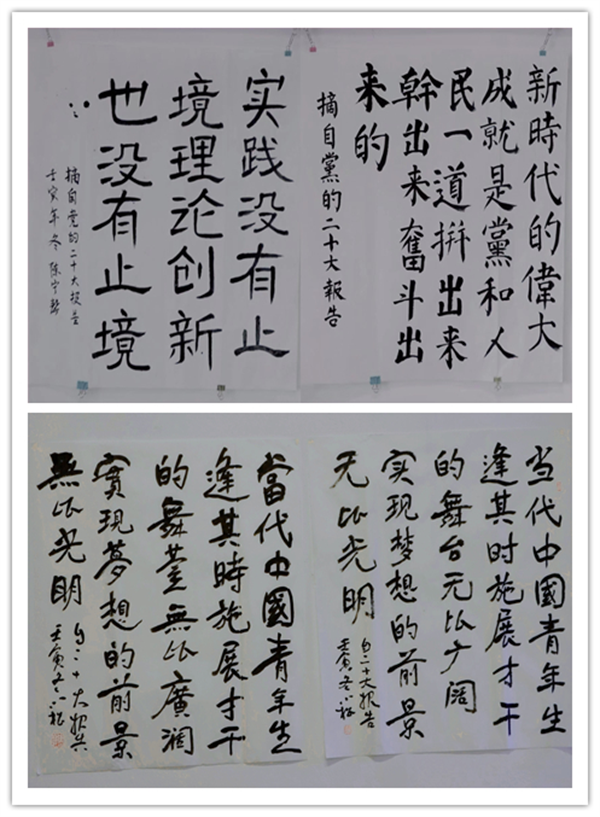 新時代的偉大
成就是黨和人
民一道拼出来
幹出来奮斗出
来的
摘自黨的二十大報告
实践没有止
境理论创新
也没有止境
摘自党的二十大报告
壬寅年冬 陈宇
当代中國青年生
逢其时施展才干
的舞台无比广阔
实现梦想的前景
无比光明
自二十大报告
壬寅冬
當代中國青年生
逢其時施展才干
的舞臺無比廣濶
實現夢想的前景
無比光明
自二十大报告
壬寅冬